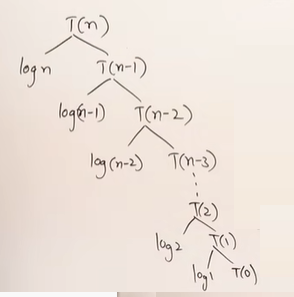 T(n)
log n T(n-1)
log(n-1) T(n-2)
log(n-2) T(n-3)
T(2)
log2 T(1)
log1 T(0)